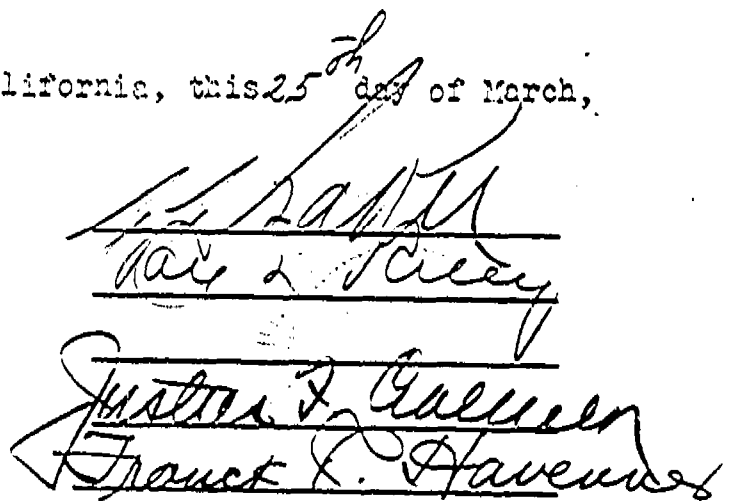 lifornia, this 25th day of March,
Ray L. Riley
Justus F. Craemer
Franck R. Havenner